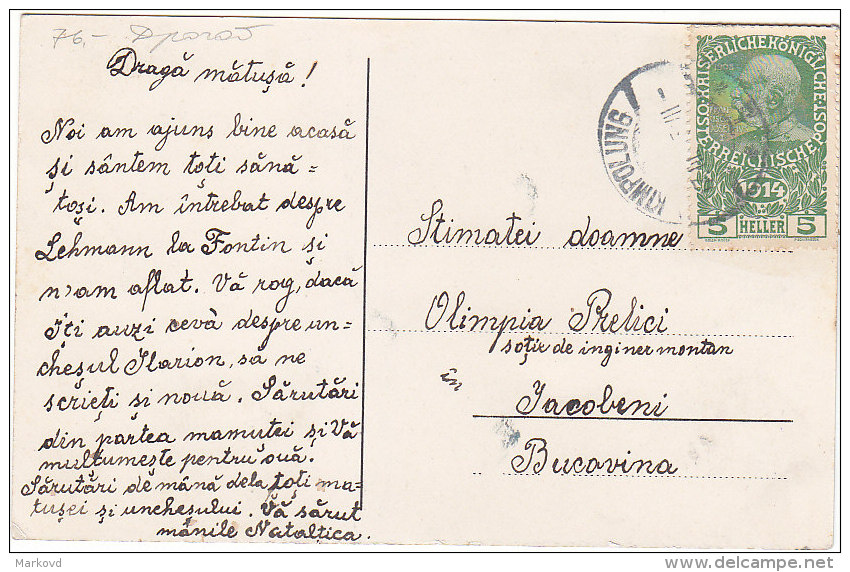 76.-
Dragă mătușă!
Noi am ajuns bine acasă
și sântem toți sănă=
toși. Am întrebat despre
Lehmann la Fontin și
n'am aflat. Vă rog, dacă
îți auzi cevà despre un-
cheșul Ilarion, să ne
scrieți și nouă. Sărutări
din partea mamutei și Vă
multumește pentru ouă.
Sărutări de mână dela toți ma-
tușei și uncheșului. Vă sărut
mânile Nataltica.
KIMPOLUNG
1914
5 HELLER 5
Stimatei doamne
Olimpia Prelici
soție de inginer montan
în
Iacobeni
Bucovina
Markovd
delcampe.net